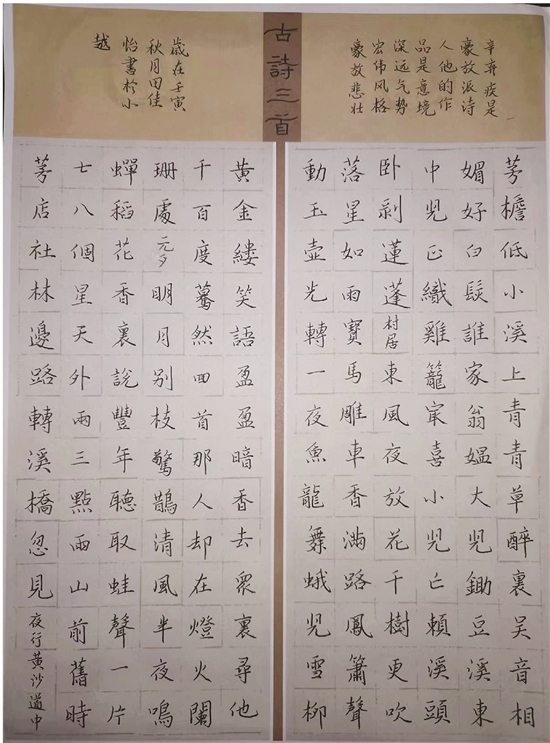 辛弃疾是一
豪放派诗
人他的作
品是意境
深远气势
宏伟风格
豪放悲壮
古詩三首
歲在壬寅
秋月田佳
怡書於小
越
茅檐低小溪上青青草醉裏吴音相
媚好白髮誰家翁媼大兒鋤豆溪東
中兒正織雞籠㝡喜小兒亡賴溪頭
卧剥蓮蓬村居東風夜放花千樹更吹
落星如雨寶馬雕車香滿路鳳簫聲
動玉壺光轉一夜魚龍舞蛾兒雪柳
黃金縷笑語盈盈暗香去眾裏尋他
千百度驀然回首那人却在燈火闌
珊處元夕明月别枝驚鵲清風半夜鳴
蟬稻花香裏說豐年聽取蛙聲一片
七八個星天外兩三點雨山前舊時
茅店社林邊路轉溪橋忽見夜行黄沙道中